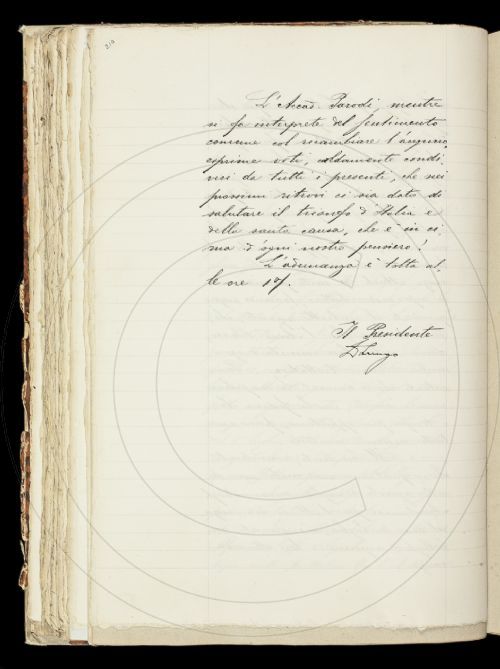 210
L'Accad. Parodi, mentre
si fa interprete del sentimento
comune col ricambiare l'augurio,
esprime voti, caldamente condi-
visi da tutti i presenti, che nei
prossimi ritrovi ci sia dato di
salutare il trionfo d'Italia e
della santa causa, che è in ci-
ma d'ogni nostro pensiero!
L'adunanza è tolta al-
le ore 17.
Il Presidente